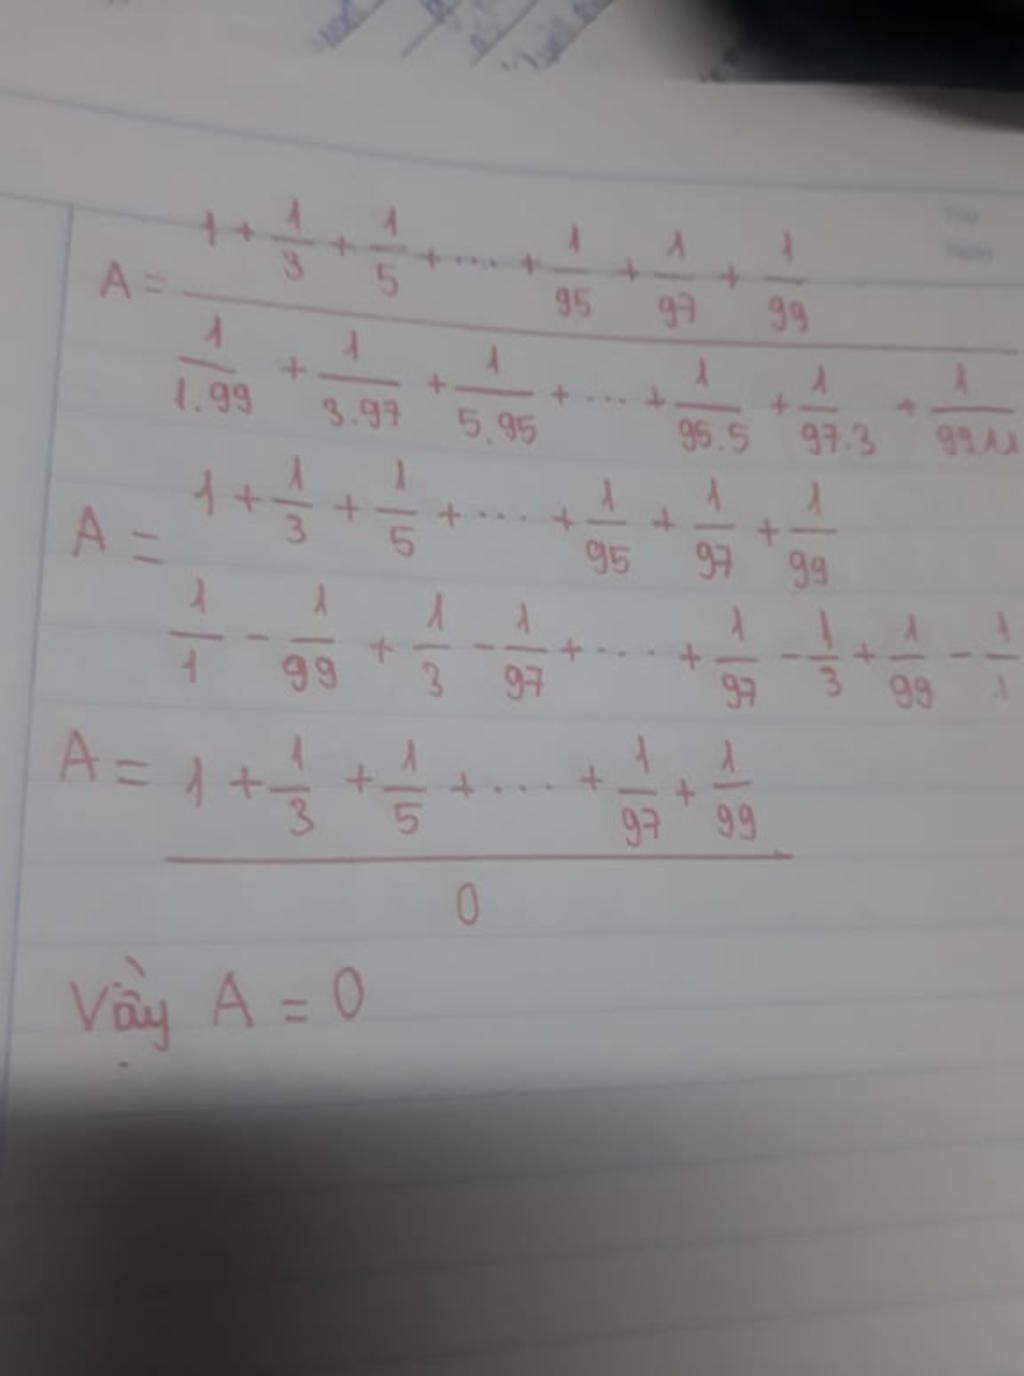 A = (1 + 1/3 + 1/5 + .... + 1/95 + 1/97 + 1/99) / (1/1.99 + 1/3.97 + 1/5.95 + ... + 1/95.5 + 1/97.3 + 1/99.11)
A = 1 + 1/3 + 1/5 + .... + 1/95 + 1/97 + 1/99
1/1 - 1/99 + 1/3 - 1/97 + .... + 1/97 - 1/3 + 1/99 - 1/1
A = (1 + 1/3 + 1/5 + .... + 1/97 + 1/99) / 0
Vậy A = 0